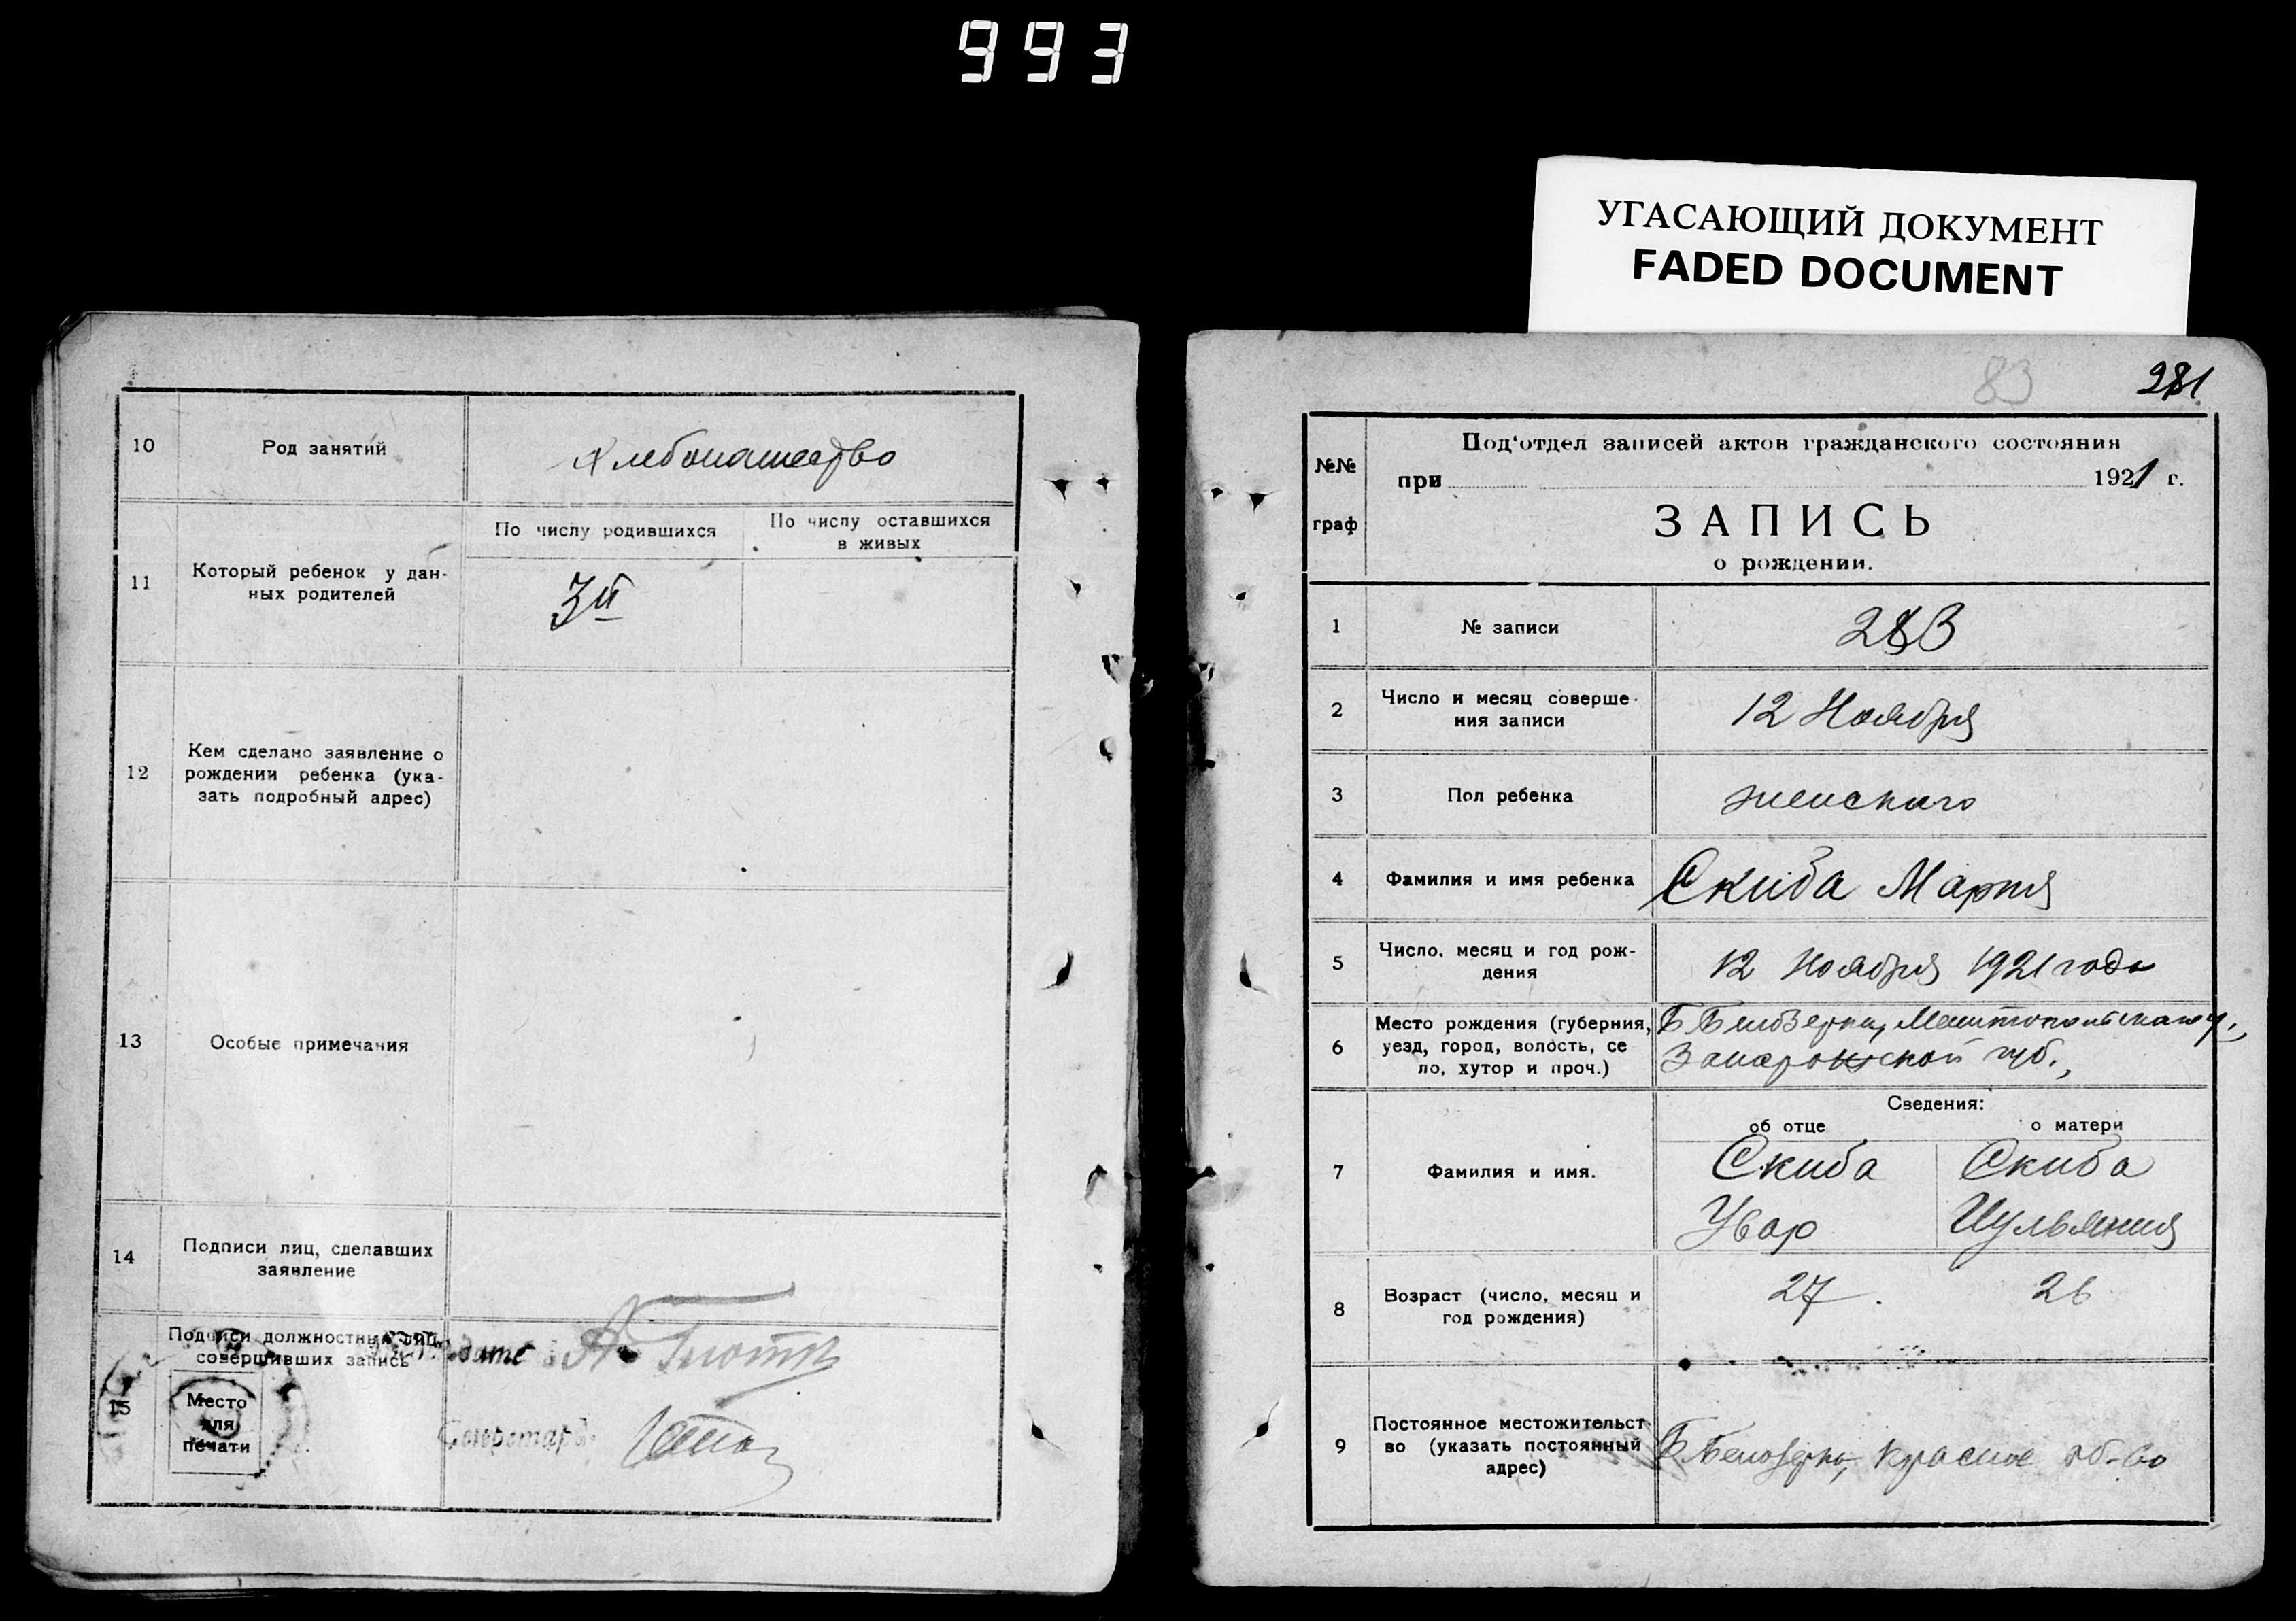 993
УГАСАЮЩИЙ ДОКУМЕНТ
FADED DOCUMENT
10
Род занятий
Хлебопашество
11
Который ребенок у дан-
ных родителей
По числу родившихся
По числу оставшихся
в живых
3й
12
Кем сделано заявление о
рождении ребенка (ука-
зать подробный адрес)
13
Особые примечания
14
Подписи лиц, сделавших
заявление
15
Подписи должностных лиц,
совершивших запись
Место
для
печати
Секретарь
83
281
№№
граф
Под'отдел записей актов гражданского состояния
при 1921 г.
ЗАПИСЬ
о рождении.
1
№ записи
283
2
Число и месяц соверше-
ния записи
12 Ноября
3
Пол ребенка
женскаго
4
Фамилия и имя ребенка
Скиба Мария
5
Число, месяц и год рож-
дения
12 Ноября 1921 года
6
Место рождения (губерния,
уезд, город, волость, се
ло, хутор и проч.)
Б Белозерка, Мелитопольскаго у.,
Запарожской губ.,
Сведения:
об отце
о матери
7
Фамилия и имя.
Скиба
Увар
Скиба
Иульяния
8
Возраст (число, месяц и
год рождения)
27.
26
9
Постоянное местожительст-
во (указать постоянный
адрес)
Б Белозерка, Красное об-во